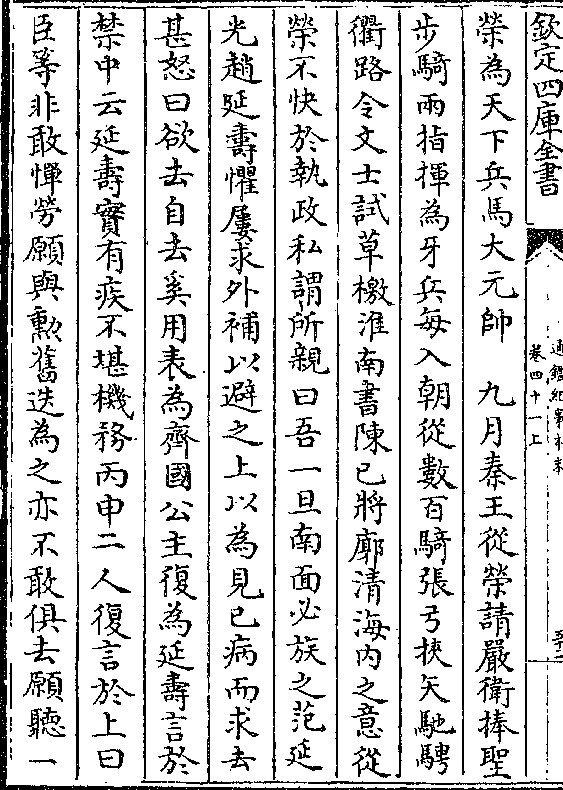 欽定四庫全書
通鑑紀事本末
卷四十一上
榮為天下兵馬大元帥　九月秦王從榮請嚴衛捧聖
步騎兩指揮為牙兵每入朝從數百騎張弓挾矢馳騁
衢路令文士試草檄淮南書陳已將廓清海内之意從
榮不快於執政私謂所親曰吾一旦南面必族之范延
光趙延壽懼屢求外補以避之上以為見已病而求去
甚怒曰欲去自去奚用表為齊國公主復為延壽言於
禁中云延壽實有疾不堪機務丙申二人復言於上曰
臣等非敢憚勞願與勲舊迭為之亦不敢俱去願聽一